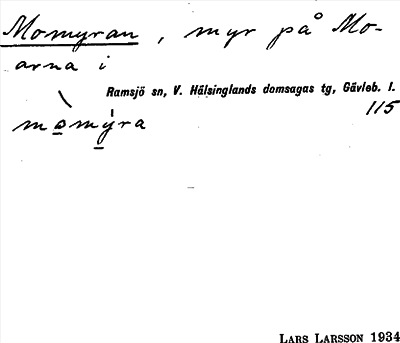 Momyran, myr på Mo-
arna i
Ramsjö sn, V. Hälsinglands domsagas tg, Gävleb. l.
115
mo̲mý̲ra
LARS LARSSON 1934